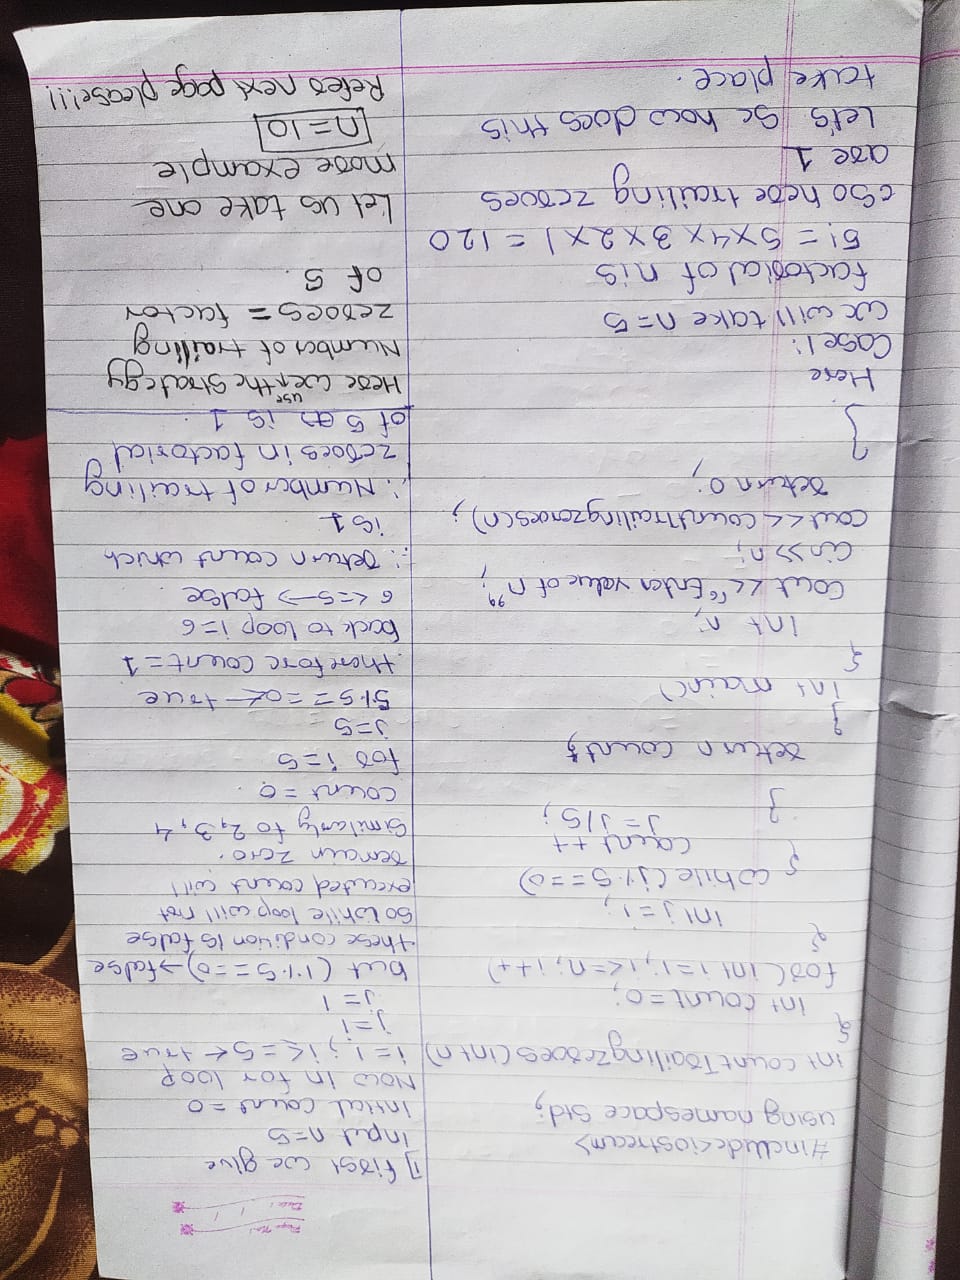 Page No.:
Date: / /
#include<iostream>
using namespace std;
int countTrailingzeroes(int n)
{
int count=0;
for(int i=1;i<=n;i++)
{
int j=i;
while(j%5==0)
{
count++
j=j/5;
}
return count;
}
int main()
{
int n;
cout<<"Enter value of n";
cin>>n;
cout<<countTrailingzeroes(n);
return 0;
}
Here
Case1:
we will take n=5
factorial of n is
5!=5x4x3x2x1=120
So here trailing zeroes
are 1
Let's se how does this
take place.
1] first we give
input n=5
Intial count=0
Now in for loop
i=1; i<=5 ← true
j=i
j=1
but (1%5==0)→false
these condition is false
So while loop will not
executed count will
remain zero.
Similarly to 2,3,4
count=0.
for i=5
j=5
5%5==0← true
therefore count=1
back to loop i=6
6<=5→false
∴ return count which
is 1
∴ Number of trailing
zeroes in factorial
of 5 is 1.
Here we use the strategy
Number of trailing
zeroes = factor
of 5.
Let us take one
more example
n=10
Refer next page please!!!